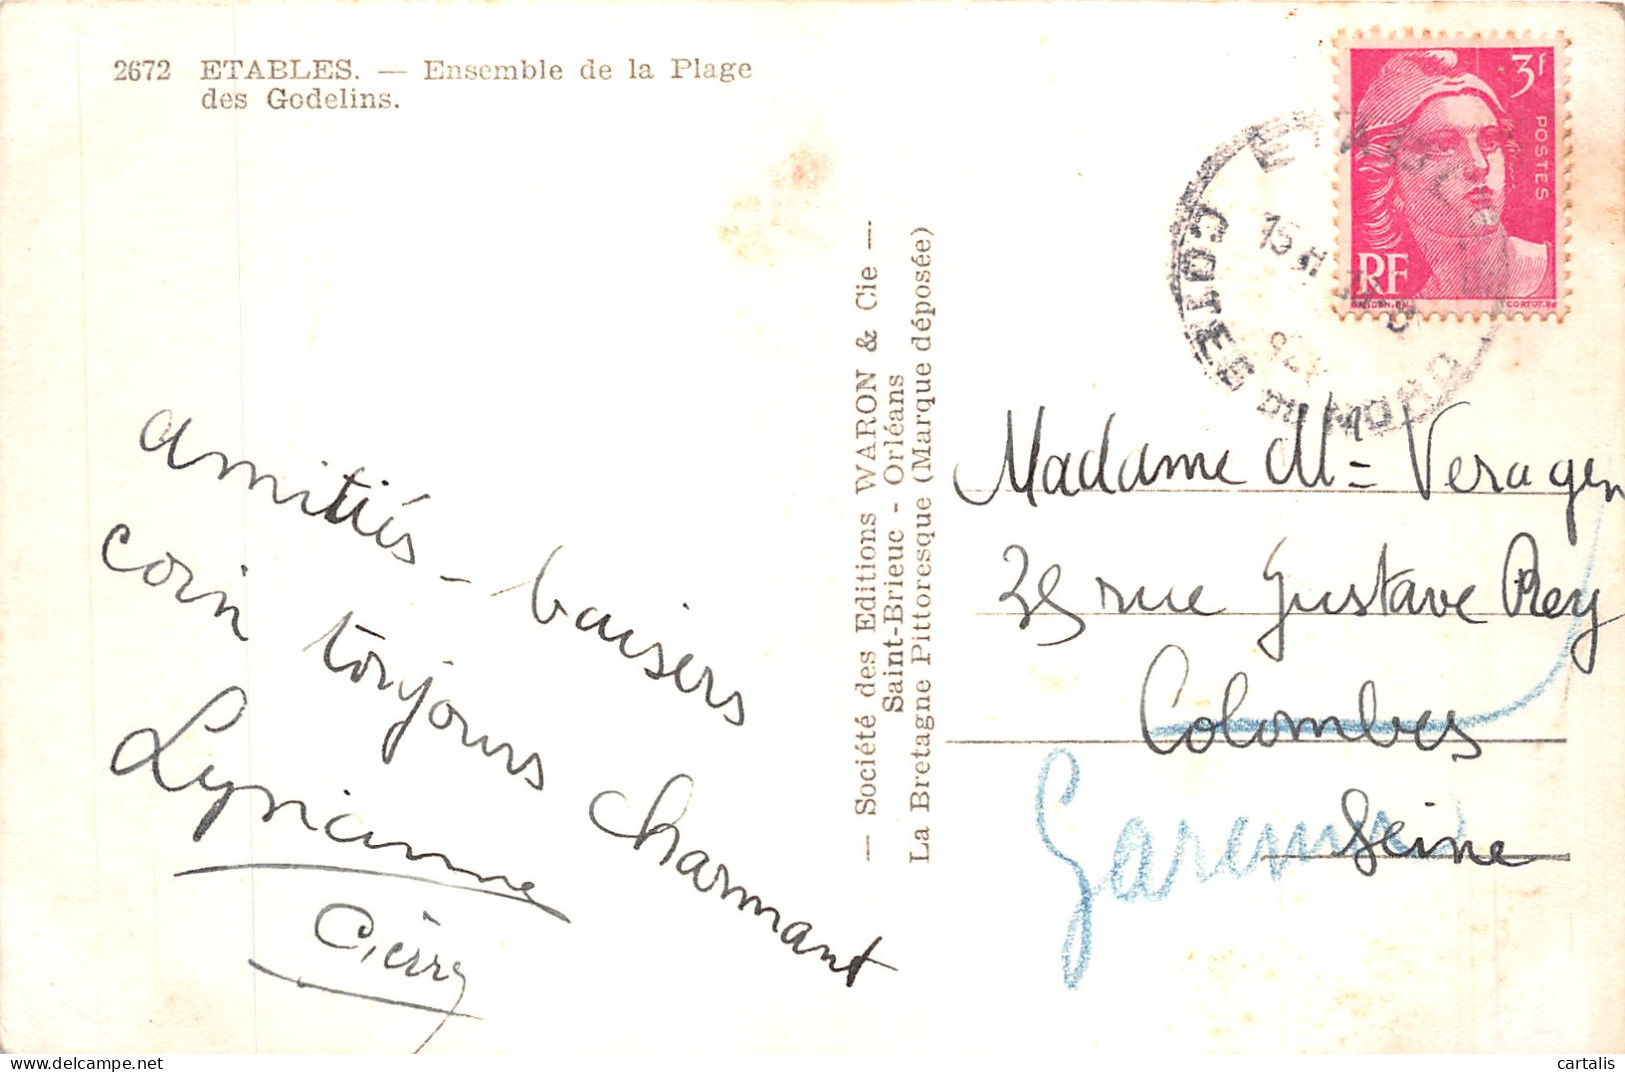 2672 ETABLES. — Ensemble de la Plage
des Godelins.
amitiés - baisers
coin toujours charmant
Lysianne
Pierre
— Société des Editions WARON & Cie —
Saint-Brieuc - Orléans
La Bretagne Pittoresque (Marque déposée)
3f
POSTES
RF
ETABLES
15H
COTES DU NORD
Madame Mme Veragen
35 rue Gustave Rey
Colombes
Seine
Garenne
cartalis